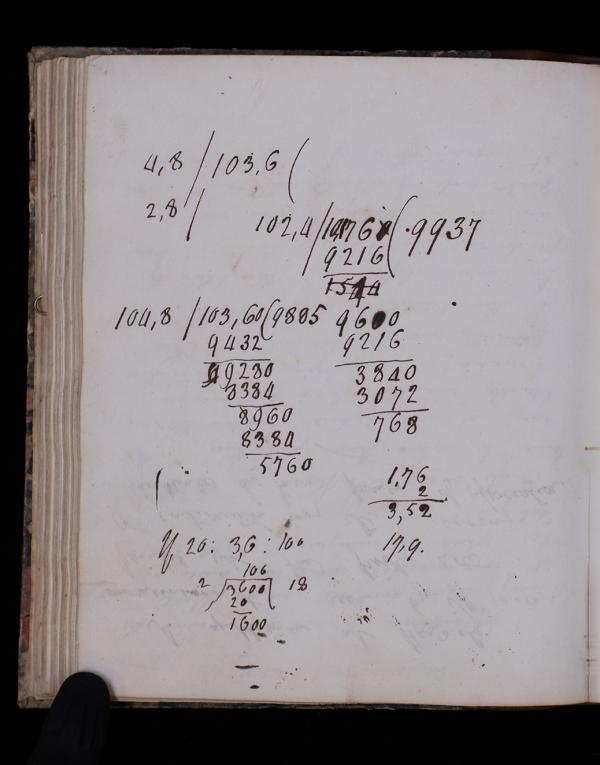 4,8 / 103,6 (
2,8 /
102,4 / 101,760 ( .9937
9216
1544
9600
9216
3840
3072
768
104,8 / 103,60 ( 9885
9432
9280
8384
8960
8384
5760
1.76
2
3,52
17,9.
If 20 : 3,6 : 100
100
2 / 3600 / 18
20
1600